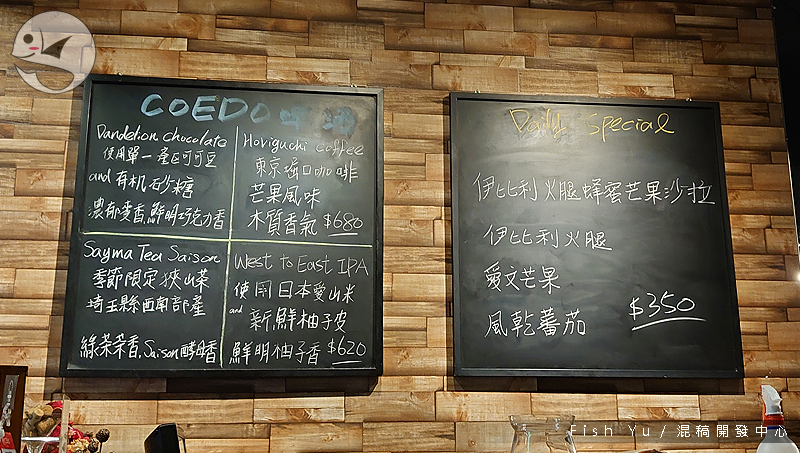 COEDO 啤酒
Dandelion chocolate
使用單一產區可可豆
and 有机砂糖
濃郁麥香,鮮明巧克力香
Horiguchi coffee
東京堀口咖啡
芒果風味
木質香氣 $680
Sayma Tea Saison
季節限定狹山茶
埼玉縣西南部產
綠茶茉香, Saison酵母香
West to East IPA
使用日本愛山米
and 新鮮柚子皮
鮮明柚子香 $620
Daily Special
伊比利火腿蜂蜜芒果沙拉
伊比利火腿
愛文芒果
風乾蕃茄 $350
Fish Yu / 混稿開發中心